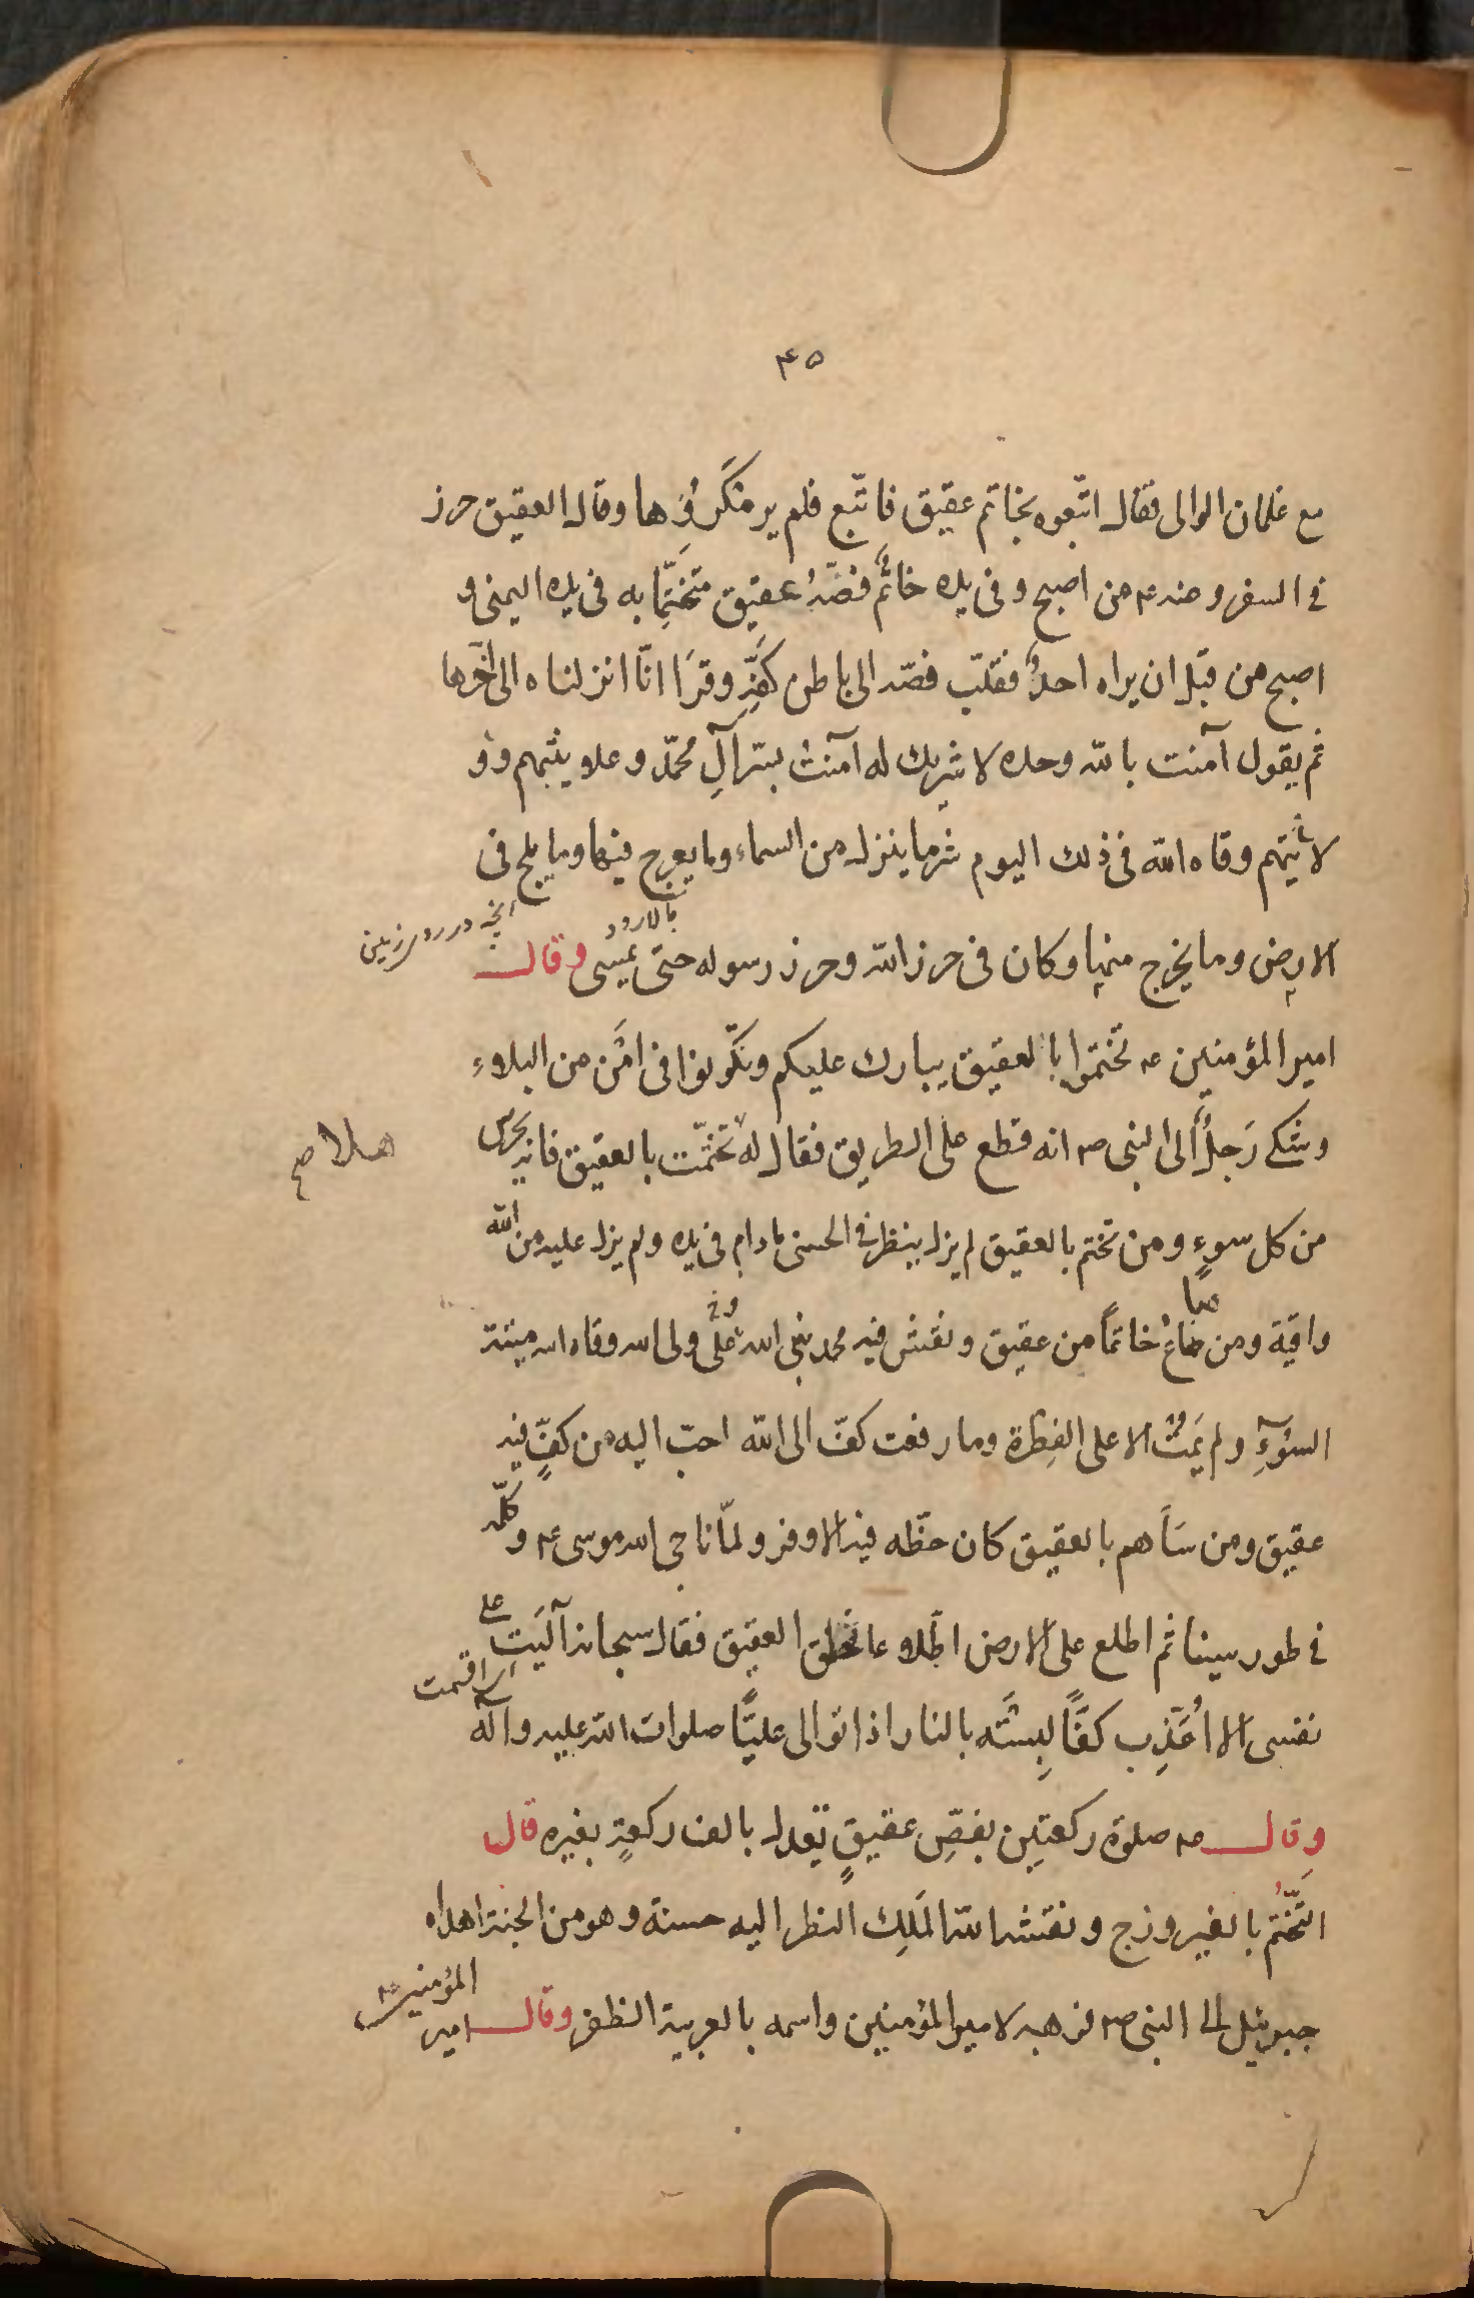 ٤٥
مع غلمان الوالى فقال اتّبعوه بخاتم عقيق فاتّبع فلم ير مكروها وقال العقيق حرز
فى السفر وعنه ع من اصبح وفى يده خاتم فصّه عقيق متختّما به فى يده اليمنى و
اصبح من قبل ان يراه احد فقلب فصّه الى باطن كفّه وقرأ انّا انزلناه الى آخرها
ثم يقول آمنت بالله وحده لا شريك له آمنت بسرّ آل محمّد وعلانيتهم و و
لايتهم وقاه الله فى ذلك اليوم شر ما ينزل من السماء وما يعرج فيها وما يلج فى
بالا رود
آنچه در رو زمين
الارض وما يخرج منها وكان فى حرز الله وحرز رسوله حتى يمسى وقال
امير المؤمنين ع تختموا بالعقيق يبارك عليكم وتكونوا فى امن من البلاء
وشكى رجل الى النبى ص انه قطع على الطريق فقال له تختّمت بالعقيق فانه يحرس
هلا صح
من كل سوء ومن تختم بالعقيق لم يزل ينظر فى الحسنى ما دام فى يده ولم يزل عليه من الله
واقية ومن صاغ خاتماً من عقيق ونقش فيه محمد نبى الله وعلىّ ولى الله وقاه الله ميتة
السوء ولم يمت الا على الفطرة وما رفعت كفّ الى الله احبّ اليه من كفٍّ فيه
عقيق ومن ساهم بالعقيق كان حظّه فيه الاوفر ولمّا ناجى الله موسى ع و كلّمه
فى طور سينا ثم اطلع على الارض اطّلاعا فخلق العقيق فقال سبحانه آليت على
اى اقسمت
نفسى الا اعذّب كفّاً لبسته بالنار اذا توالى عليّاً صلوات الله عليه وآله
وقال ع صلوة ركعتين بفصّ عقيقٍ تعدل بالف ركعةٍ بغيره قال
التّختّم بالفيروزج ونقشه الله الملك النظر اليه حسنة وهو من الجنة اهداه
جبرئيل الى النبى ص فوهبه لامير المؤمنين واسمه بالعربية الظفر وقال امير
المؤمنين ع